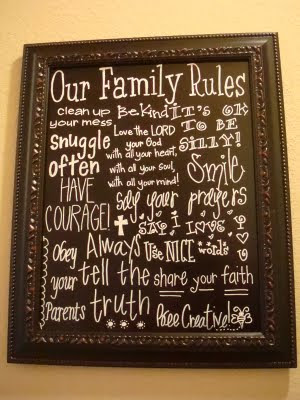 Our Family Rules
clean up your mess
Be Kind
IT'S OK TO BE SILLY!
Snuggle often
Love the LORD
your God
with all your heart,
with all your soul,
with all your mind!
Smile
HAVE COURAGE!
say your prayers
SAY I LOVE YOU
Obey your Parents
Always tell the truth
Use NICE words
share your faith
Bee Creative!